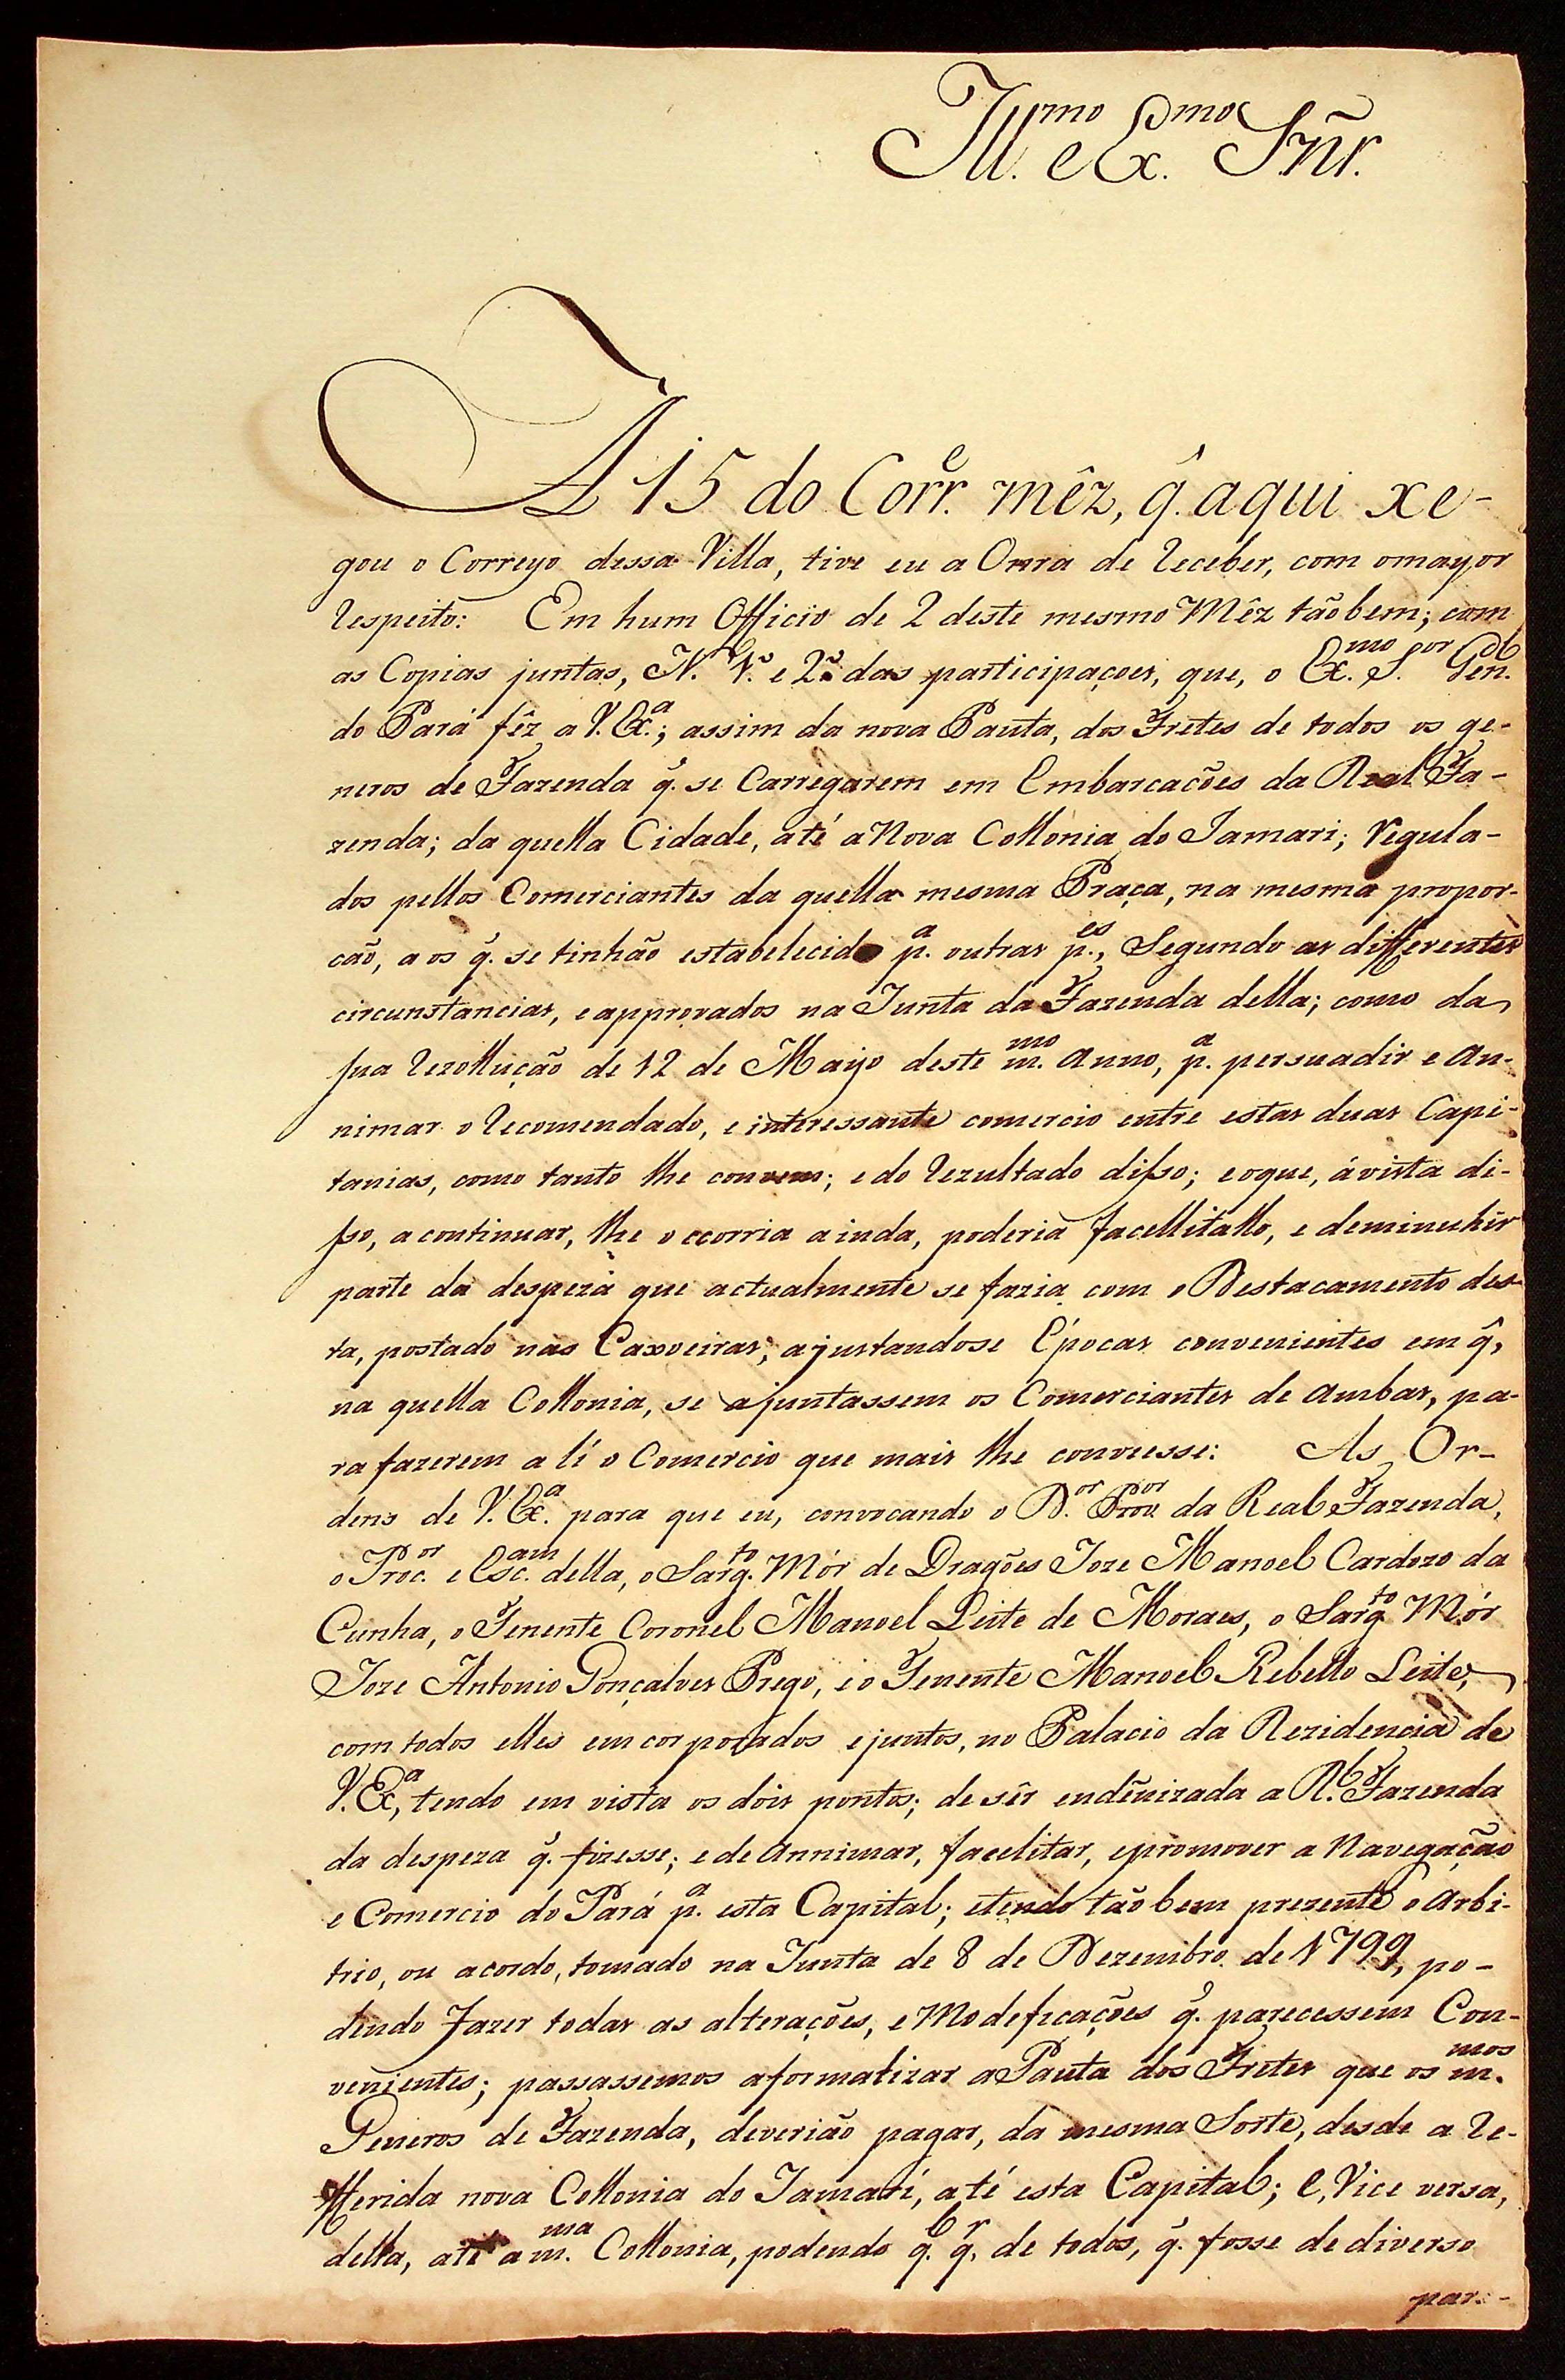 Ill.mo e Ex.mo Sñr.
A 15 do Corr.e mêz, q̃. aqui xe-
gou o Correyo dessa Villa, tive eu a Onra de Receber, com omayor
Respeito: Em hum Officio de 2 deste mesmo Mêz tãobem; com
as Copias juntas, N.os 1.º e 2.º das participaçoes, que, o Ex.mo S.or Gen.l
do Pará fêz a V. Ex.a; assim da nova Pauta, dos Fretes de todos os ge-
neros de Fazenda q̃. se Carregarem em Embarcacões da Real Fa-
zenda; da quella Cidade, até a Nova Collonia do Jamari; Regula-
dos pellos Comerciantes da quella mesma Praça, na mesma propor-
cão, a os q̃. se tinhão estabelecido p.a outras p.es, Segundo as differentes
circunstancias, e approvados na Junta da Fazenda della; como da
sua Rezollução de 12 de Mayo deste m.mo Anno, p.a persuadir e An-
nimar o Recomendado, e interessante comercio entre estas duas Capi-
tanias, como tanto lhe convem; e do Rezultado disso; e oque, ávista di-
sso, a continuar, lhe o ccorria ainda, poderia facellitallo, e deminuhir
parte da despeza que actualmente se fazia com o Destacamento des-
ta, postado nas Caxoeiras; ajustandose Épocas convenientes em q̃,
na quella Collonia, se ajuntassem os Comerciantes de Ambas, pa-
ra fazerem a lí o Comercio que mais lhe conviesse: As Or-
dens de V. Ex.a para que eu, convocando o D.or Prov.or da Real Fazenda,
o Proc.or e Esc.am della, o Sarg.to Mór de Dragões Joze Manoel Cardozo da
Cunha, o Tenente Coronel Manoel Leite de Moraes, o Sarg.to Mór
Joze Antonio Gonçalves Prego, e o Tenente Manoel Rebello Leite,
com todos elles emcorporados e juntos, no Palacio da Rezidencia de
V. Ex.a, tendo em vista os dois pontos; de sêr endẽnizada a R.l Fazenda
da despeza q̃. fizesse; e de Annimar, facelitar, epromover a Navegação
e Comercio do Pará p.a esta Capital; etendo tãobem prezente o Arbi-
trio, ou acordo, tomado na Junta de 8 de Dezembro de 1799, po-
dendo Fazer todas as alterações, e Modeficações q̃. parecessem Con-
venientes; passassemos aformalizar a Pauta dos Fretes que os m.mos
Generos de Fazenda, deverião pagar, da mesma Sorte, desde a Re-
fferida nova Collonia do Jamarí, até esta Capital; e, Vice versa,
della, até a m.ma Collonia, podendo q.l q.r de todos, q̃. fosse de diverso
par-